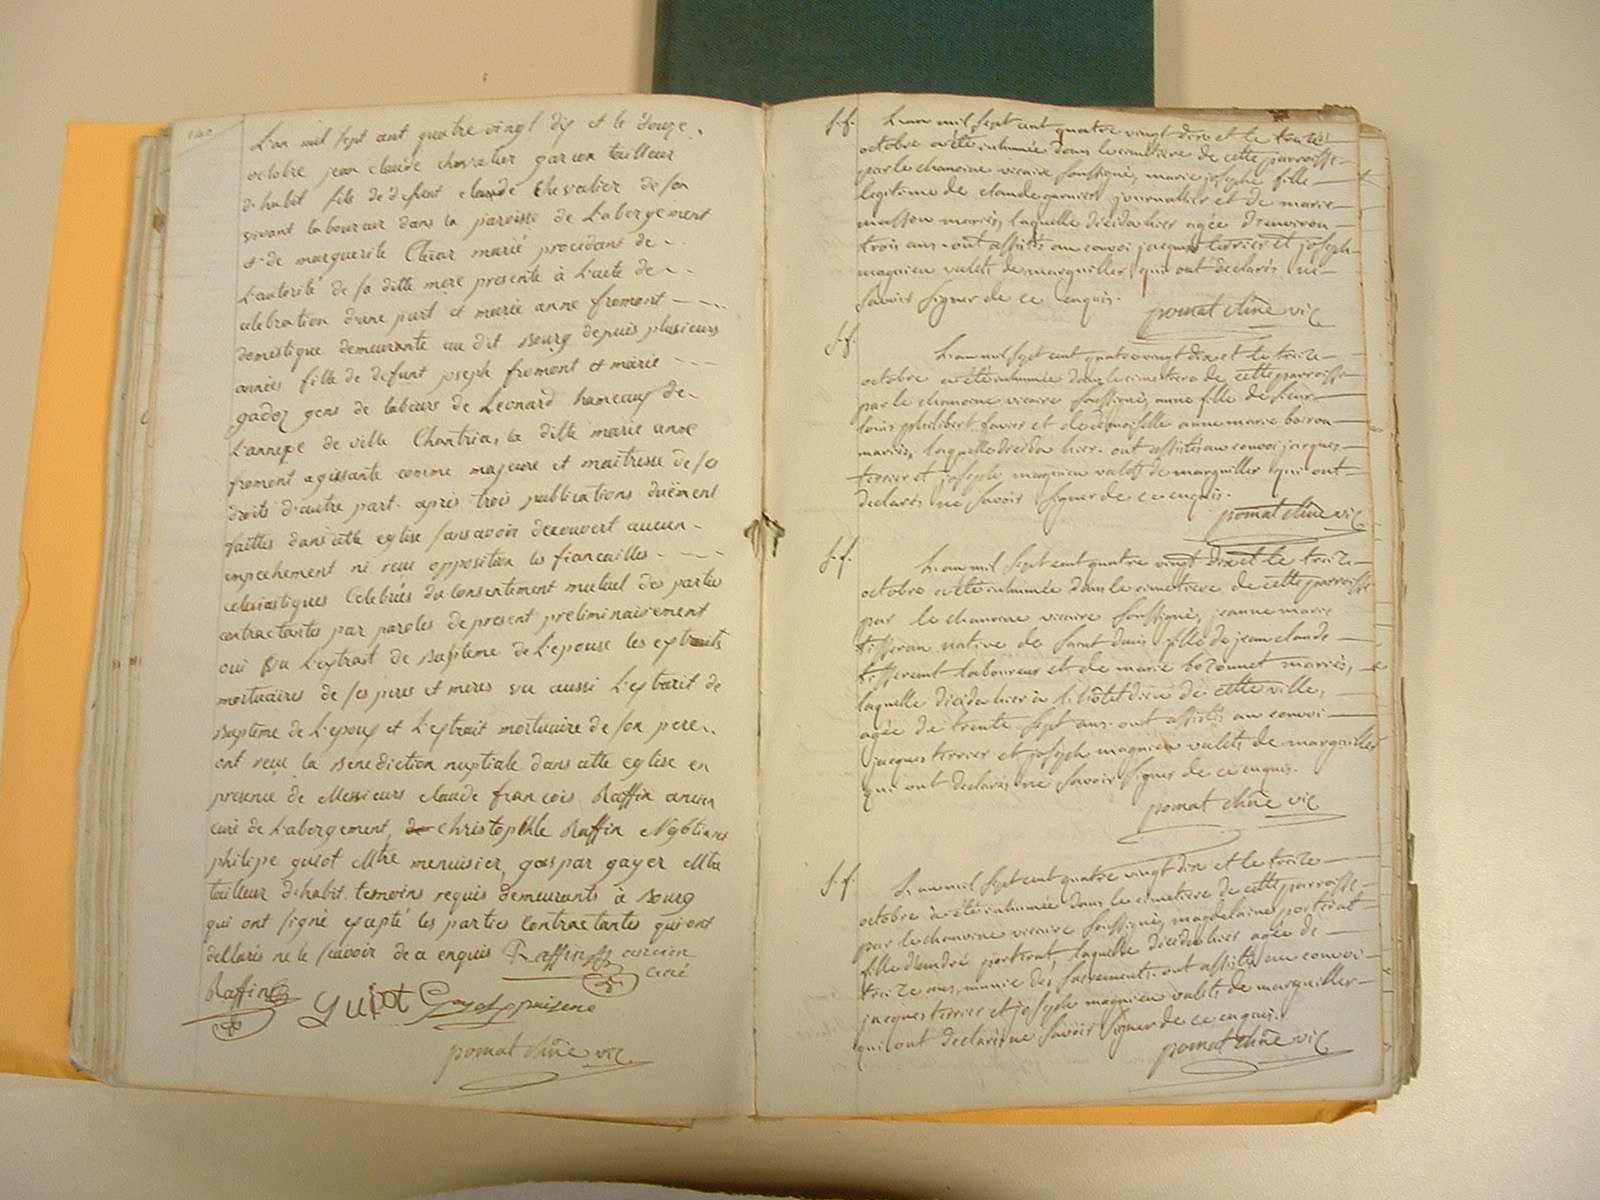 140
L'an mil sept cent quatre vingt dix et le douze
octobre jean claude chevalier garcon tailleur
d'habit fils de defunt claude chevalier de son
vivant laboureur dans la paroisse de Labergement
et de marguerite marié procedant de
L'autorité de sa ditte mere presente à L'acte de
celebration d'une part et marie anne fromont
domestique demeurante au dit Bourg depuis plusieurs
années fille de defunt joseph fromont et marie
gadoz gens de labeurs de Leonard hameaux de
l'annexe de ville Chantria, la ditte marie anne
fromont agissante comme majeure et maitresse de ses
droits d'autre part. après trois publications duëment
faittes dans cette eglise sans avoir decouvert aucun
empechement ni reçu opposition les fiancailles
eclesiastiques Celebrées du Consentement mutuel des parties
contractantes par paroles de present preliminairement
oui vu L'extrait de Bapteme de L'epouse les extraits
mortuaires de ses peres et meres vu aussi L'extrait de
Bapteme de L'epoux et L'extrait mortuaire de son pere
ont reçu la Benediction nuptiale dans cette eglise en
presence de Messieurs claude françois Raffin ancien
curé de Labergement, christophle Raffin Négotiant
philipe guiot Mtre menuisier, gaspar gayet Mtre
tailleur d'habit temoins requis demeurants à Bourg
qui ont signé excepté les parties Contractantes qui ont
dellarés ne le scavoir de ce enquis Raffin ancien
curé
Raffin Guiot Gayet
pomat chne vic
s.f. L'an mil sept cent quatre vingt dix et le treize
octobre a été inhumée dans le cimetiere de cette parroisse
par le chanoine vicaire soussigné, marie josephe fille
legitime de claude garnier journallier et de marie
masson mariés, laquelle décéda hier agée d'environ
trois ans. ont assistés au convoi jacques terrier et joseph
magnien valets de marguiller qui ont déclarés ne
savoir signer de ce enquis.
pomat chne vic
s.f. L'an mil sept cent quatre vingt dix et le treize
octobre a été inhumée dans le cimetiere de cette parroisse
par le chanoine vicaire soussigné, anne fille de sieur
louis philibert favier et de demoiselle anne marie boiron
mariés, laquelle décéda hier. ont assistés au convoi jacques
terrier et joseph magnien valets de marguiller qui ont
declarés ne savoir signer de ce enquis.
pomat chne vic
s.f. L'an mil sept cent quatre vingt dix et le treize
octobre a été inhumée dans le cimetiere de cette parroisse
par le chanoine vicaire soussigné, jeanne marie
tisseran native de saint denis fille de jean claude
tisserant laboureur et de marie bozonnet mariés,
laquelle décéda hier à l'hôtel dieu de cette ville,
agée de trente sept ans. ont assistés au convoi
jacques terrier et joseph magnien valets de marguiller
qui ont declarés ne savoir signer de ce enquis.
pomat chne vic
s.f. L'an mil sept cent quatre vingt dix et le treize
octobre a été inhumée dans le cimetiere de cette parroisse
par le chanoine vicaire soussigné, magdelaine porterat
fille d'andré porterat, laquelle décéda hier agée de
treize ans, munie des sacrements. ont assistés au convoi
jacques terrier et joseph magnien valets de marguiller
qui ont declarés ne savoir signer de ce enquis.
pomat chne vic